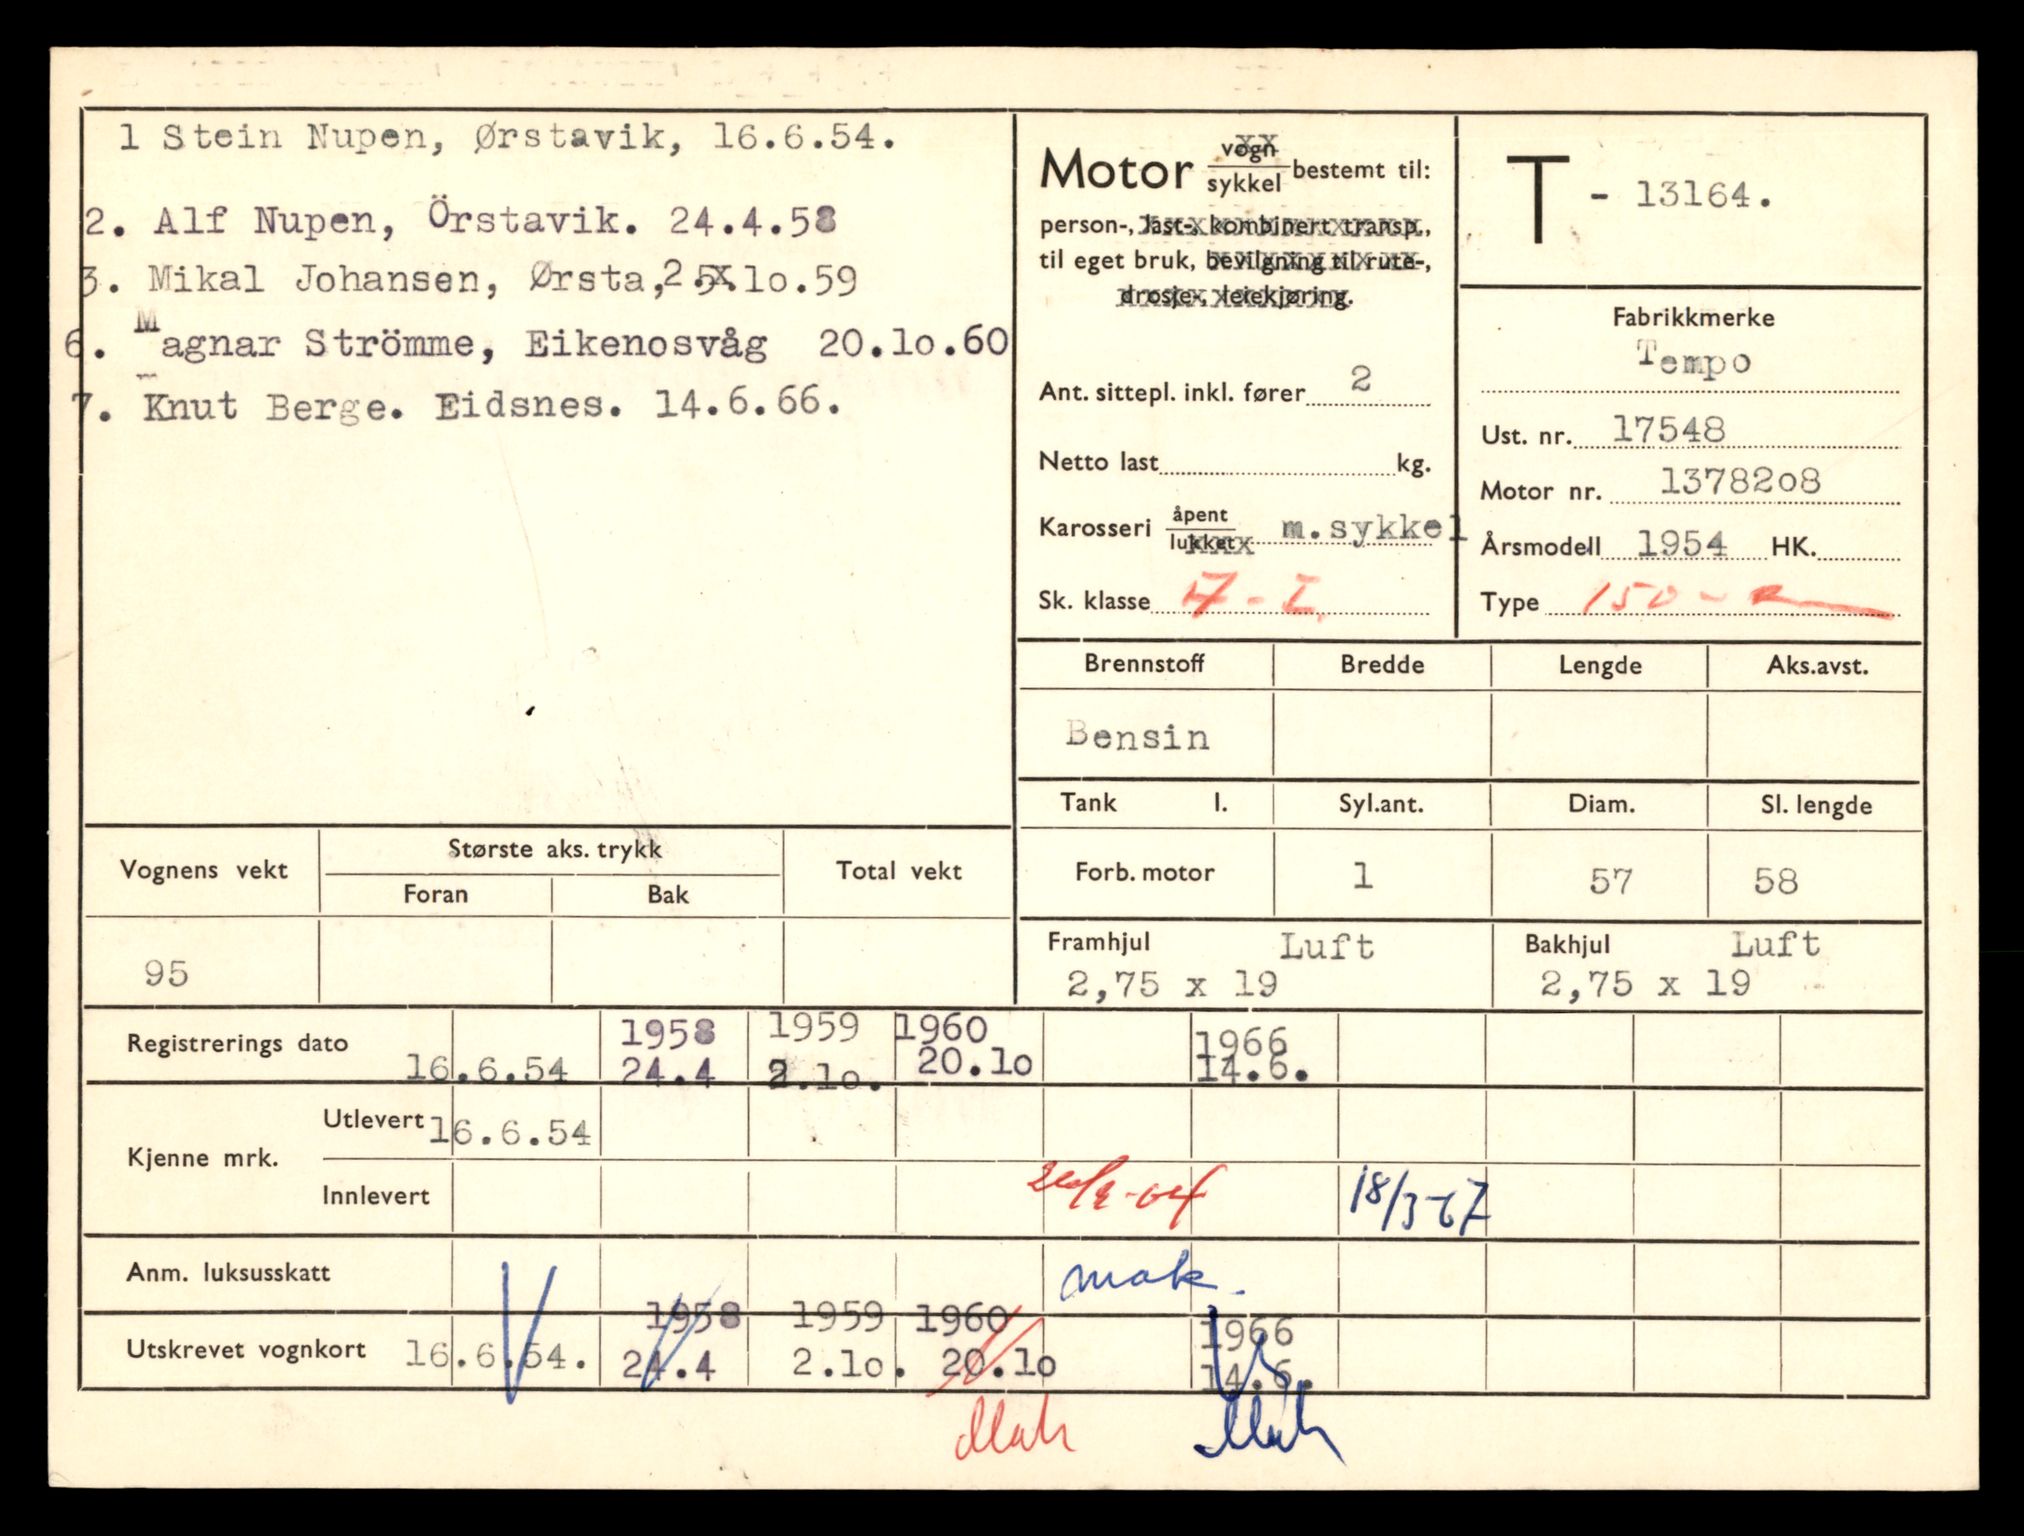 1 Stein Nupen, Ørstavik, 16.6.54.
2. Alf Nupen, Örstavik. 24.4.58
3. Mikal Johansen, Ørsta, 2.10.59
6. Magnar Strömme, Eikenosvåg 20.10.60
7. Knut Berge. Eidsnes. 14.6.66.
Motor vogn sykkel bestemt til:
person-, last-, kombinert transp.,
til eget bruk, bevilgning til rute-,
drosje-, leiekjøring.
Ant. sittepl. inkl. fører 2
Netto last kg.
Karosseri åpent lukket m.sykkel
Sk. klasse A-I
T - 13164.
Fabrikkmerke
Tempo
Ust. nr. 17548
Motor nr. 1378208
Årsmodell 1954 HK.
Type 150
Brennstoff Bredde Lengde Aks.avst.
Bensin
Tank l. Syl.ant. Diam. Sl. lengde
Forb. motor 1 57 58
Framhjul Luft Bakhjul Luft
2,75 x 19 2,75 x 19
Vognens vekt Største aks. trykk Total vekt
Foran Bak
95
Registrerings dato 16.6.54 1958 24.4 1959 2.10. 1960 20.10 1966 14.6.
Kjenne mrk. Utlevert 16.6.54
Innlevert 18/3-67
Anm. luksusskatt mak.
Utskrevet vognkort 16.6.54. 1958 24.4 1959 2.10. 1960 20.10 1966 14.6.